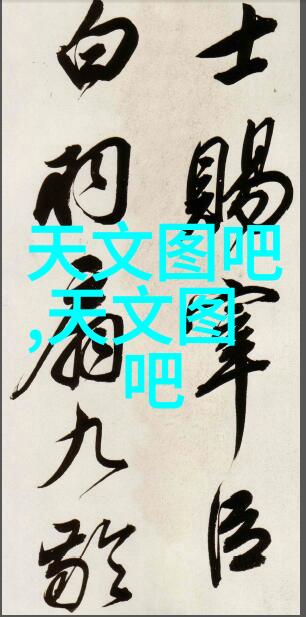 士賜宰臣
白羽扇九齡
天文图吧
,天文图
吧